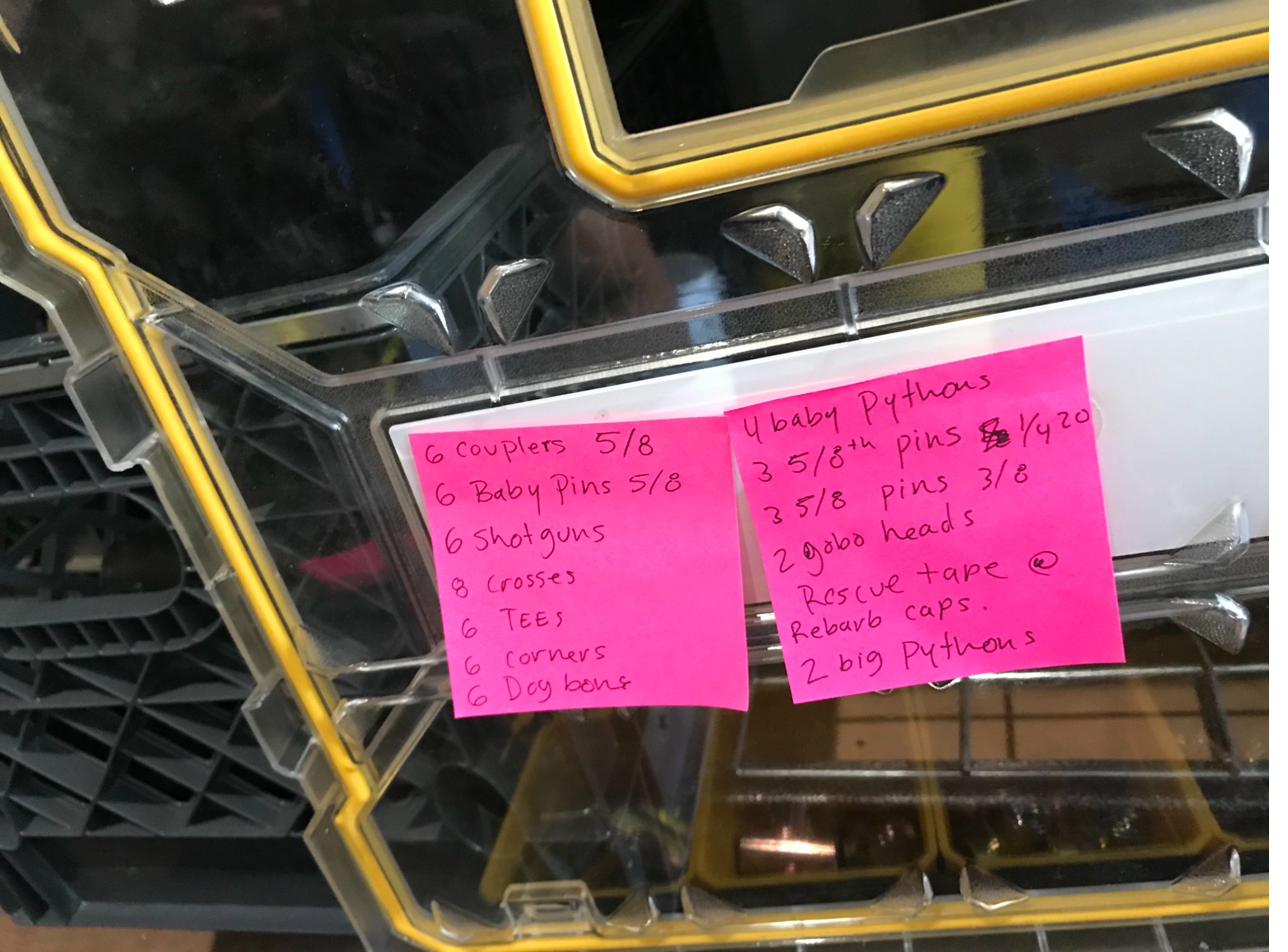 6 couplers 5/8
6 Baby Pins 5/8
6 shotguns
8 crosses
6 TEES
6 corners
6 Dog bone
4 baby Pythons
3 5/8th pins 1/4 20
3 5/8 pins 3/8
2 gobo heads
Rescue tape
Rebarb caps.
2 big Pythons